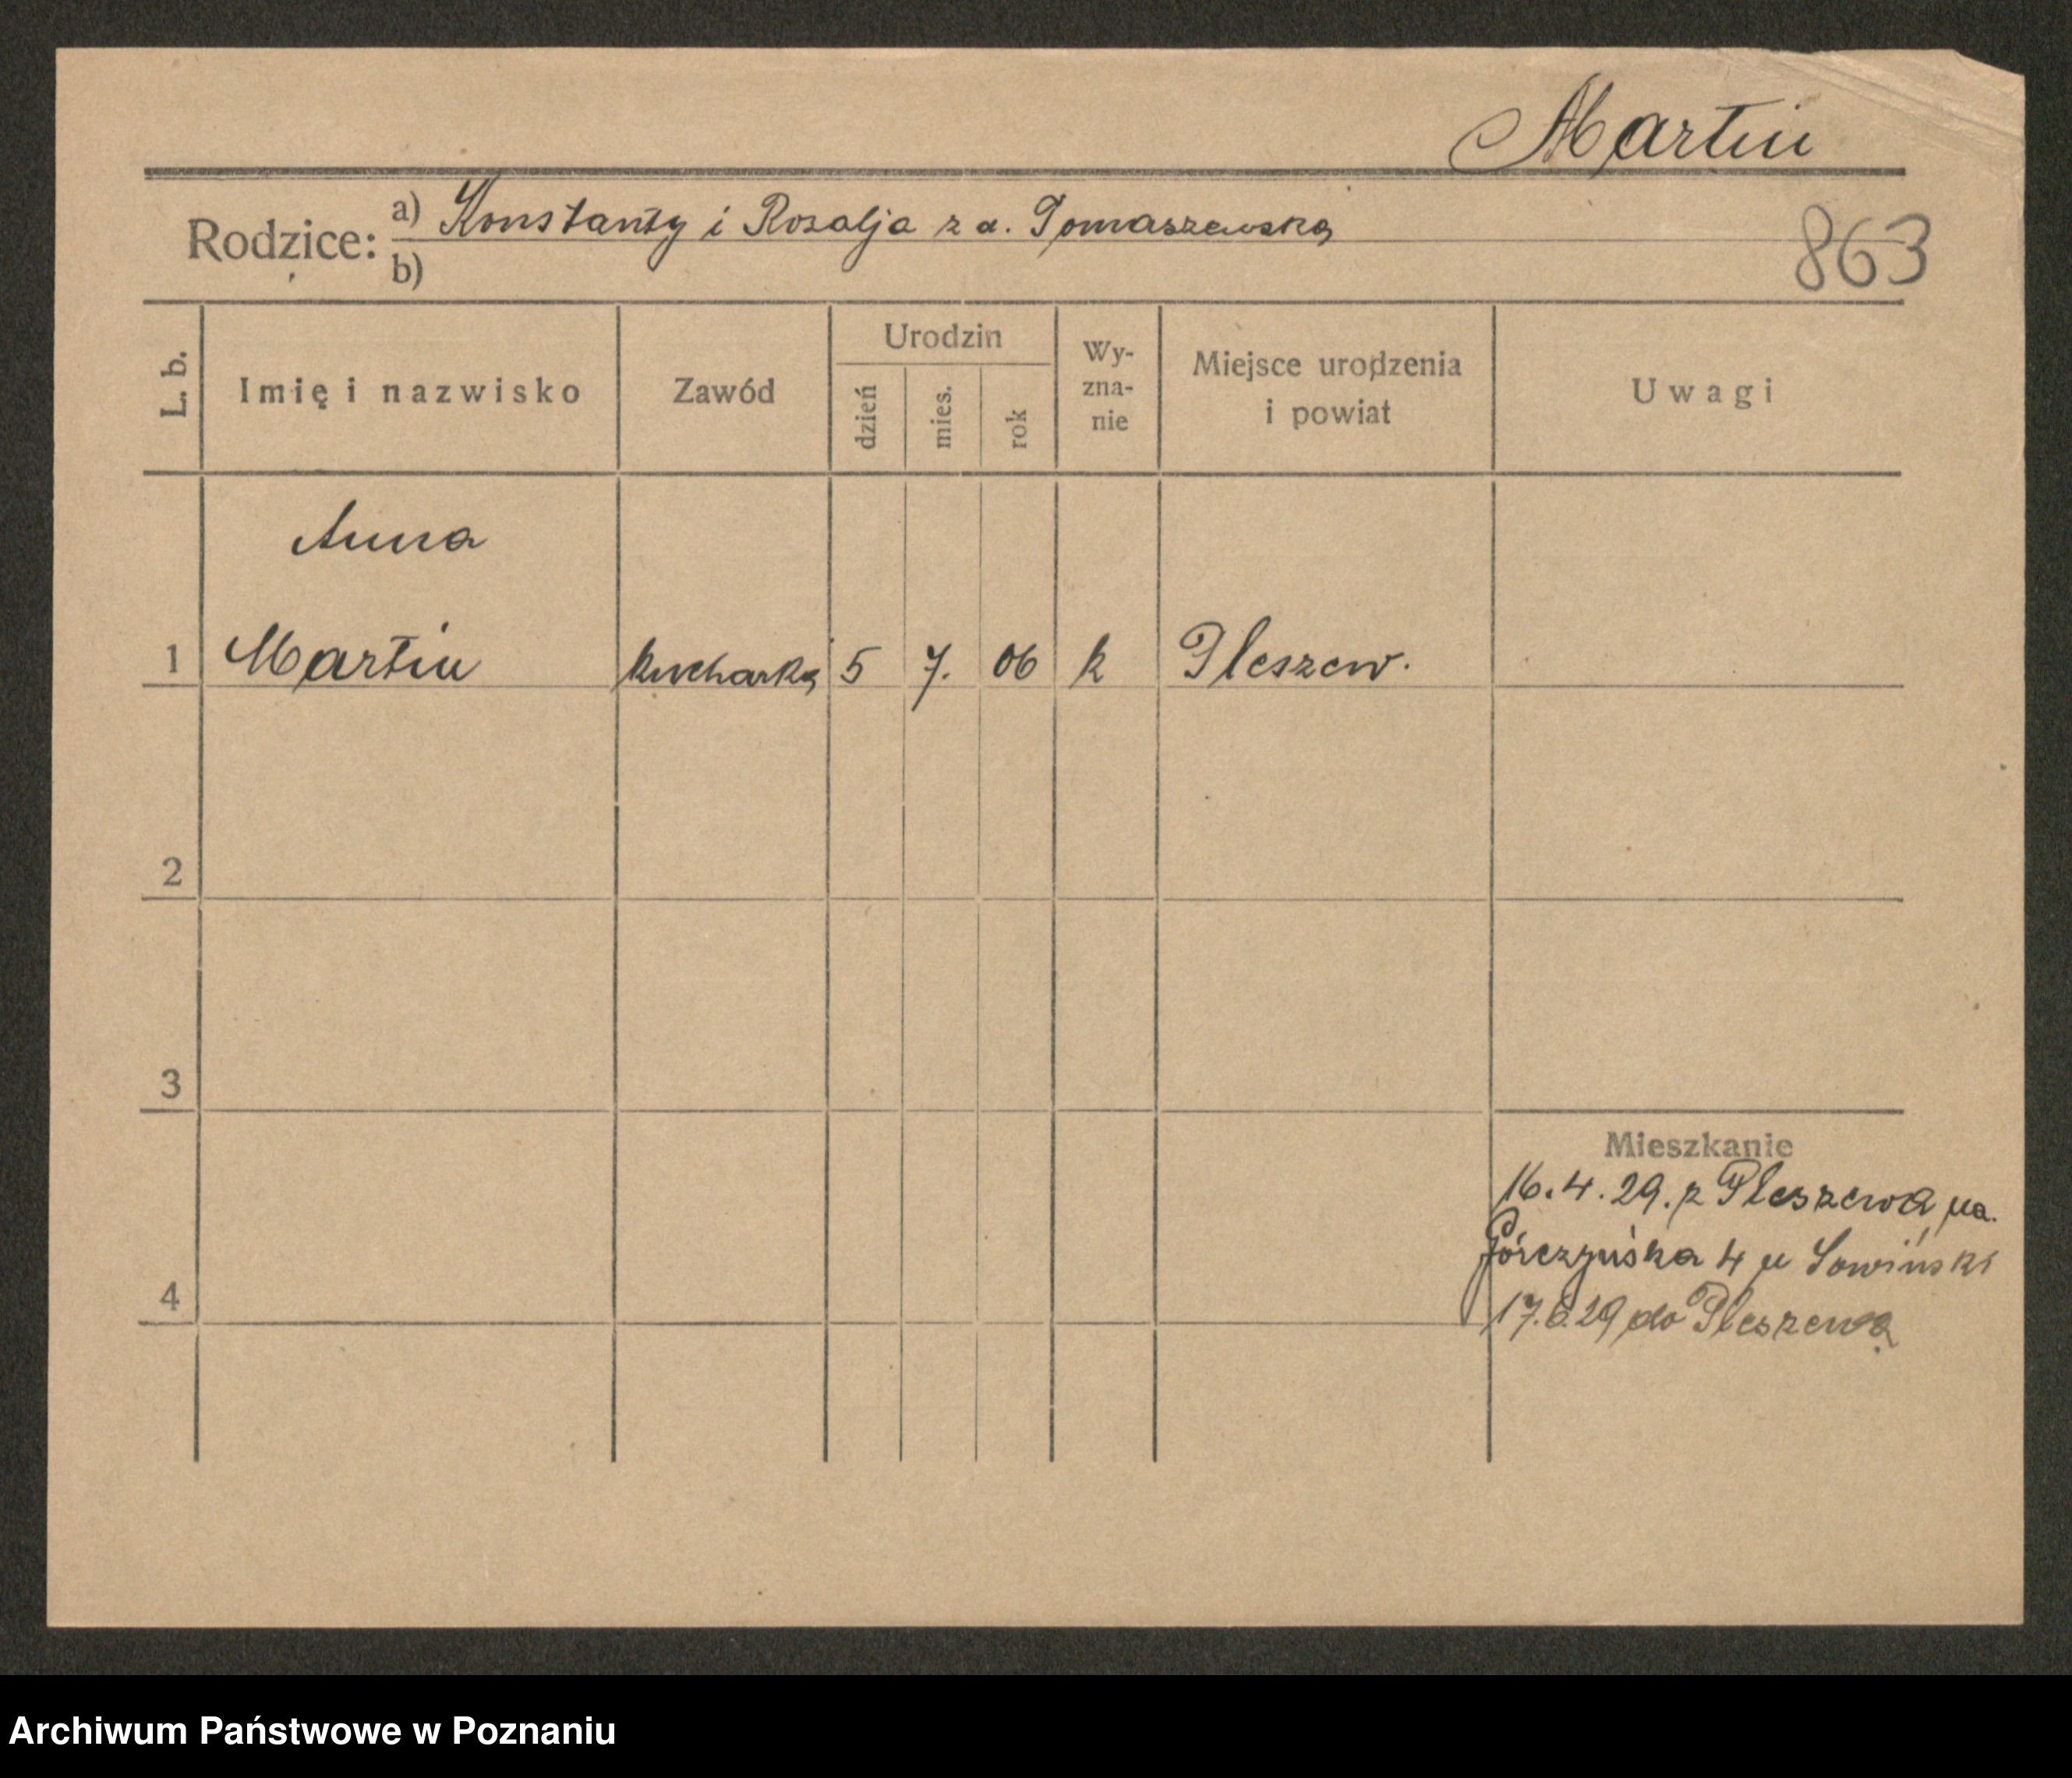 Martin
Rodzice: a) Konstanty i Rozalja z d. Tomaszewska
863
b)
L. b. Imię i nazwisko Zawód Urodzin dzień mies. rok Wy-zna-nie Miejsce urodzenia i powiat Uwagi
Anna
1 Martin kucharka 5 7. 06 k Pleszew.
2
3
Mieszkanie
16.4.29. z Pleszewa na.
Górczyńska 4 u Sowiński
4
17.6.29 do Pleszewa
Archiwum Państwowe w Poznaniu